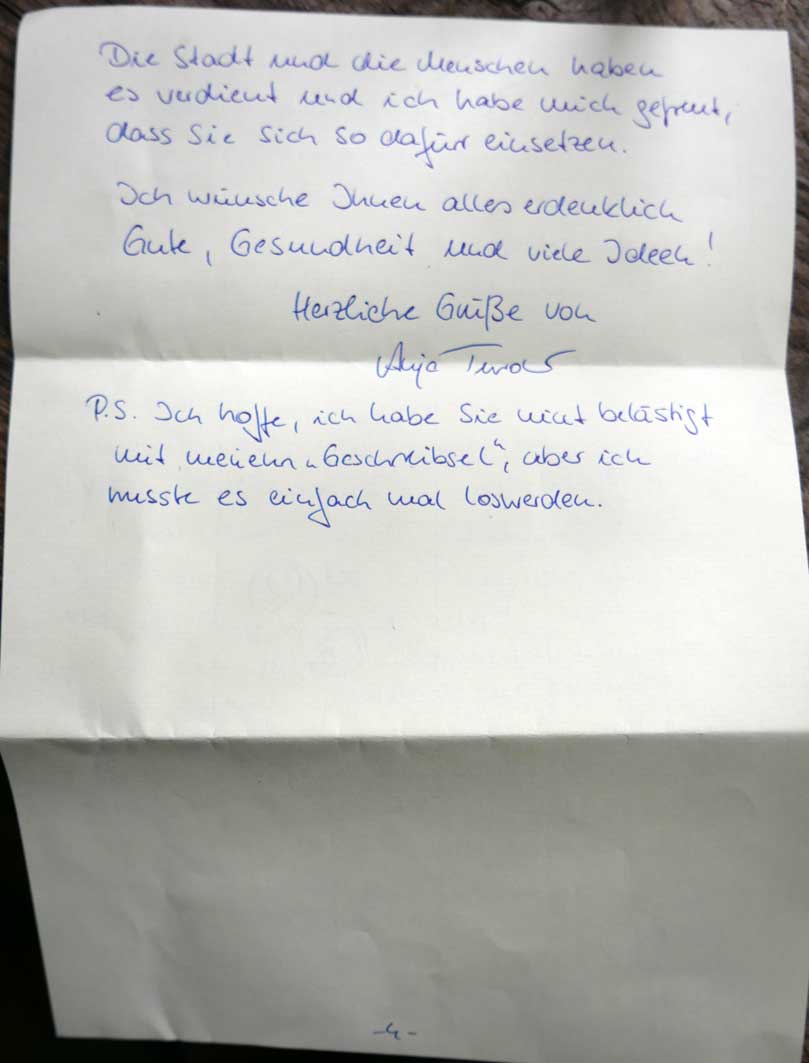 Die Stadt und die Menschen haben
es verdient und ich habe mich gefreut,
dass Sie sich so dafür einsetzen.
Ich wünsche Ihnen alles erdenklich
Gute, Gesundheit und viele Ideen!
Herzliche Grüße von
Anja
P.S. Ich hoffe, ich habe Sie nicht belästigt
mit meinem „Geschreibsel“, aber ich
musste es einfach mal loswerden.
-4-